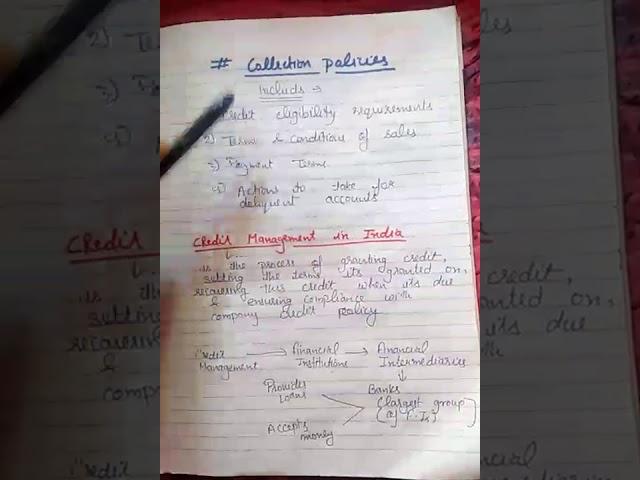 # Collection policies
Includs →
Credit eligibility requirements
2) Terms & conditions of sales
3) Payment Terms
4) Actions to take for
deliquent accounts
Credit Management in India
is the process of granting credit,
setting the terms its granted on,
recovering this credit when its due
& ensuring compliance with
company credit policy
Credit Management → Financial Institutions → Financial Intermediaries
Provides Loans
Banks
(largest group
of F.Is)
Accepts money